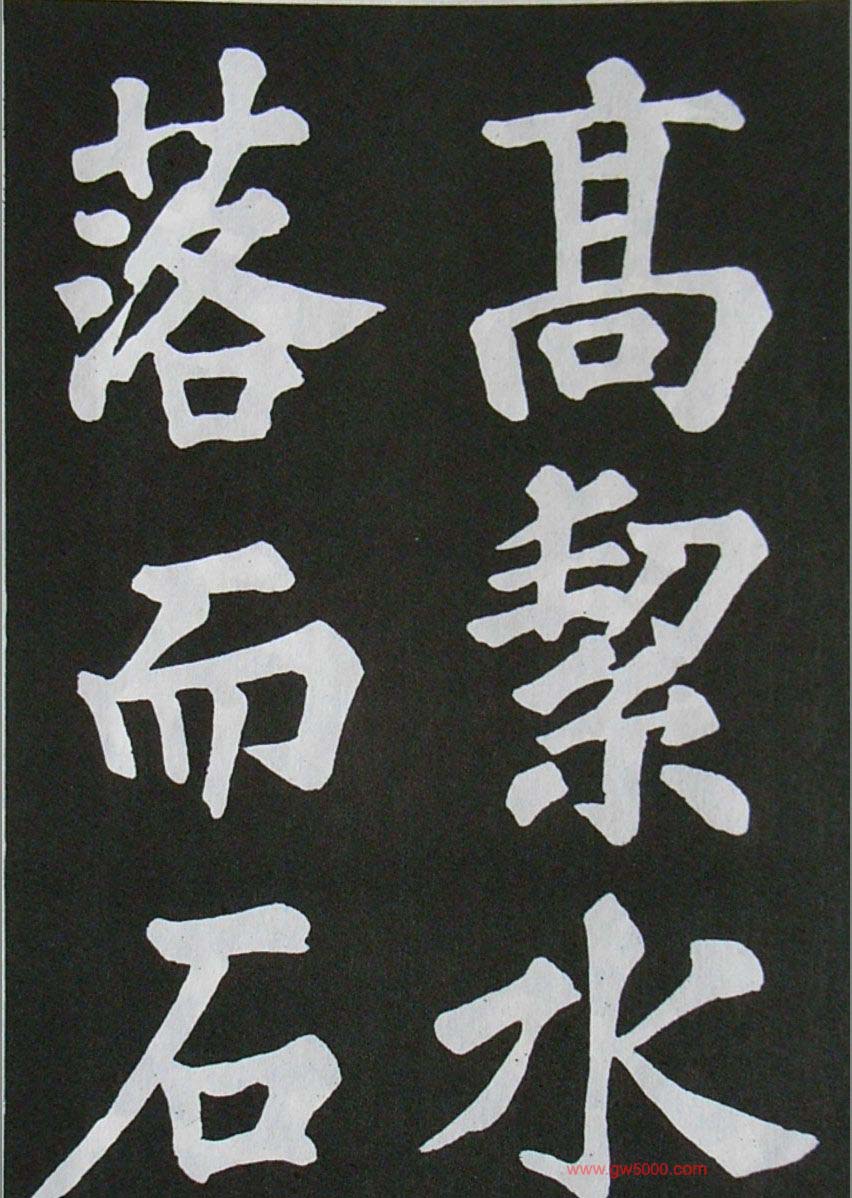 髙絜水
落而石
www.gw5000.com